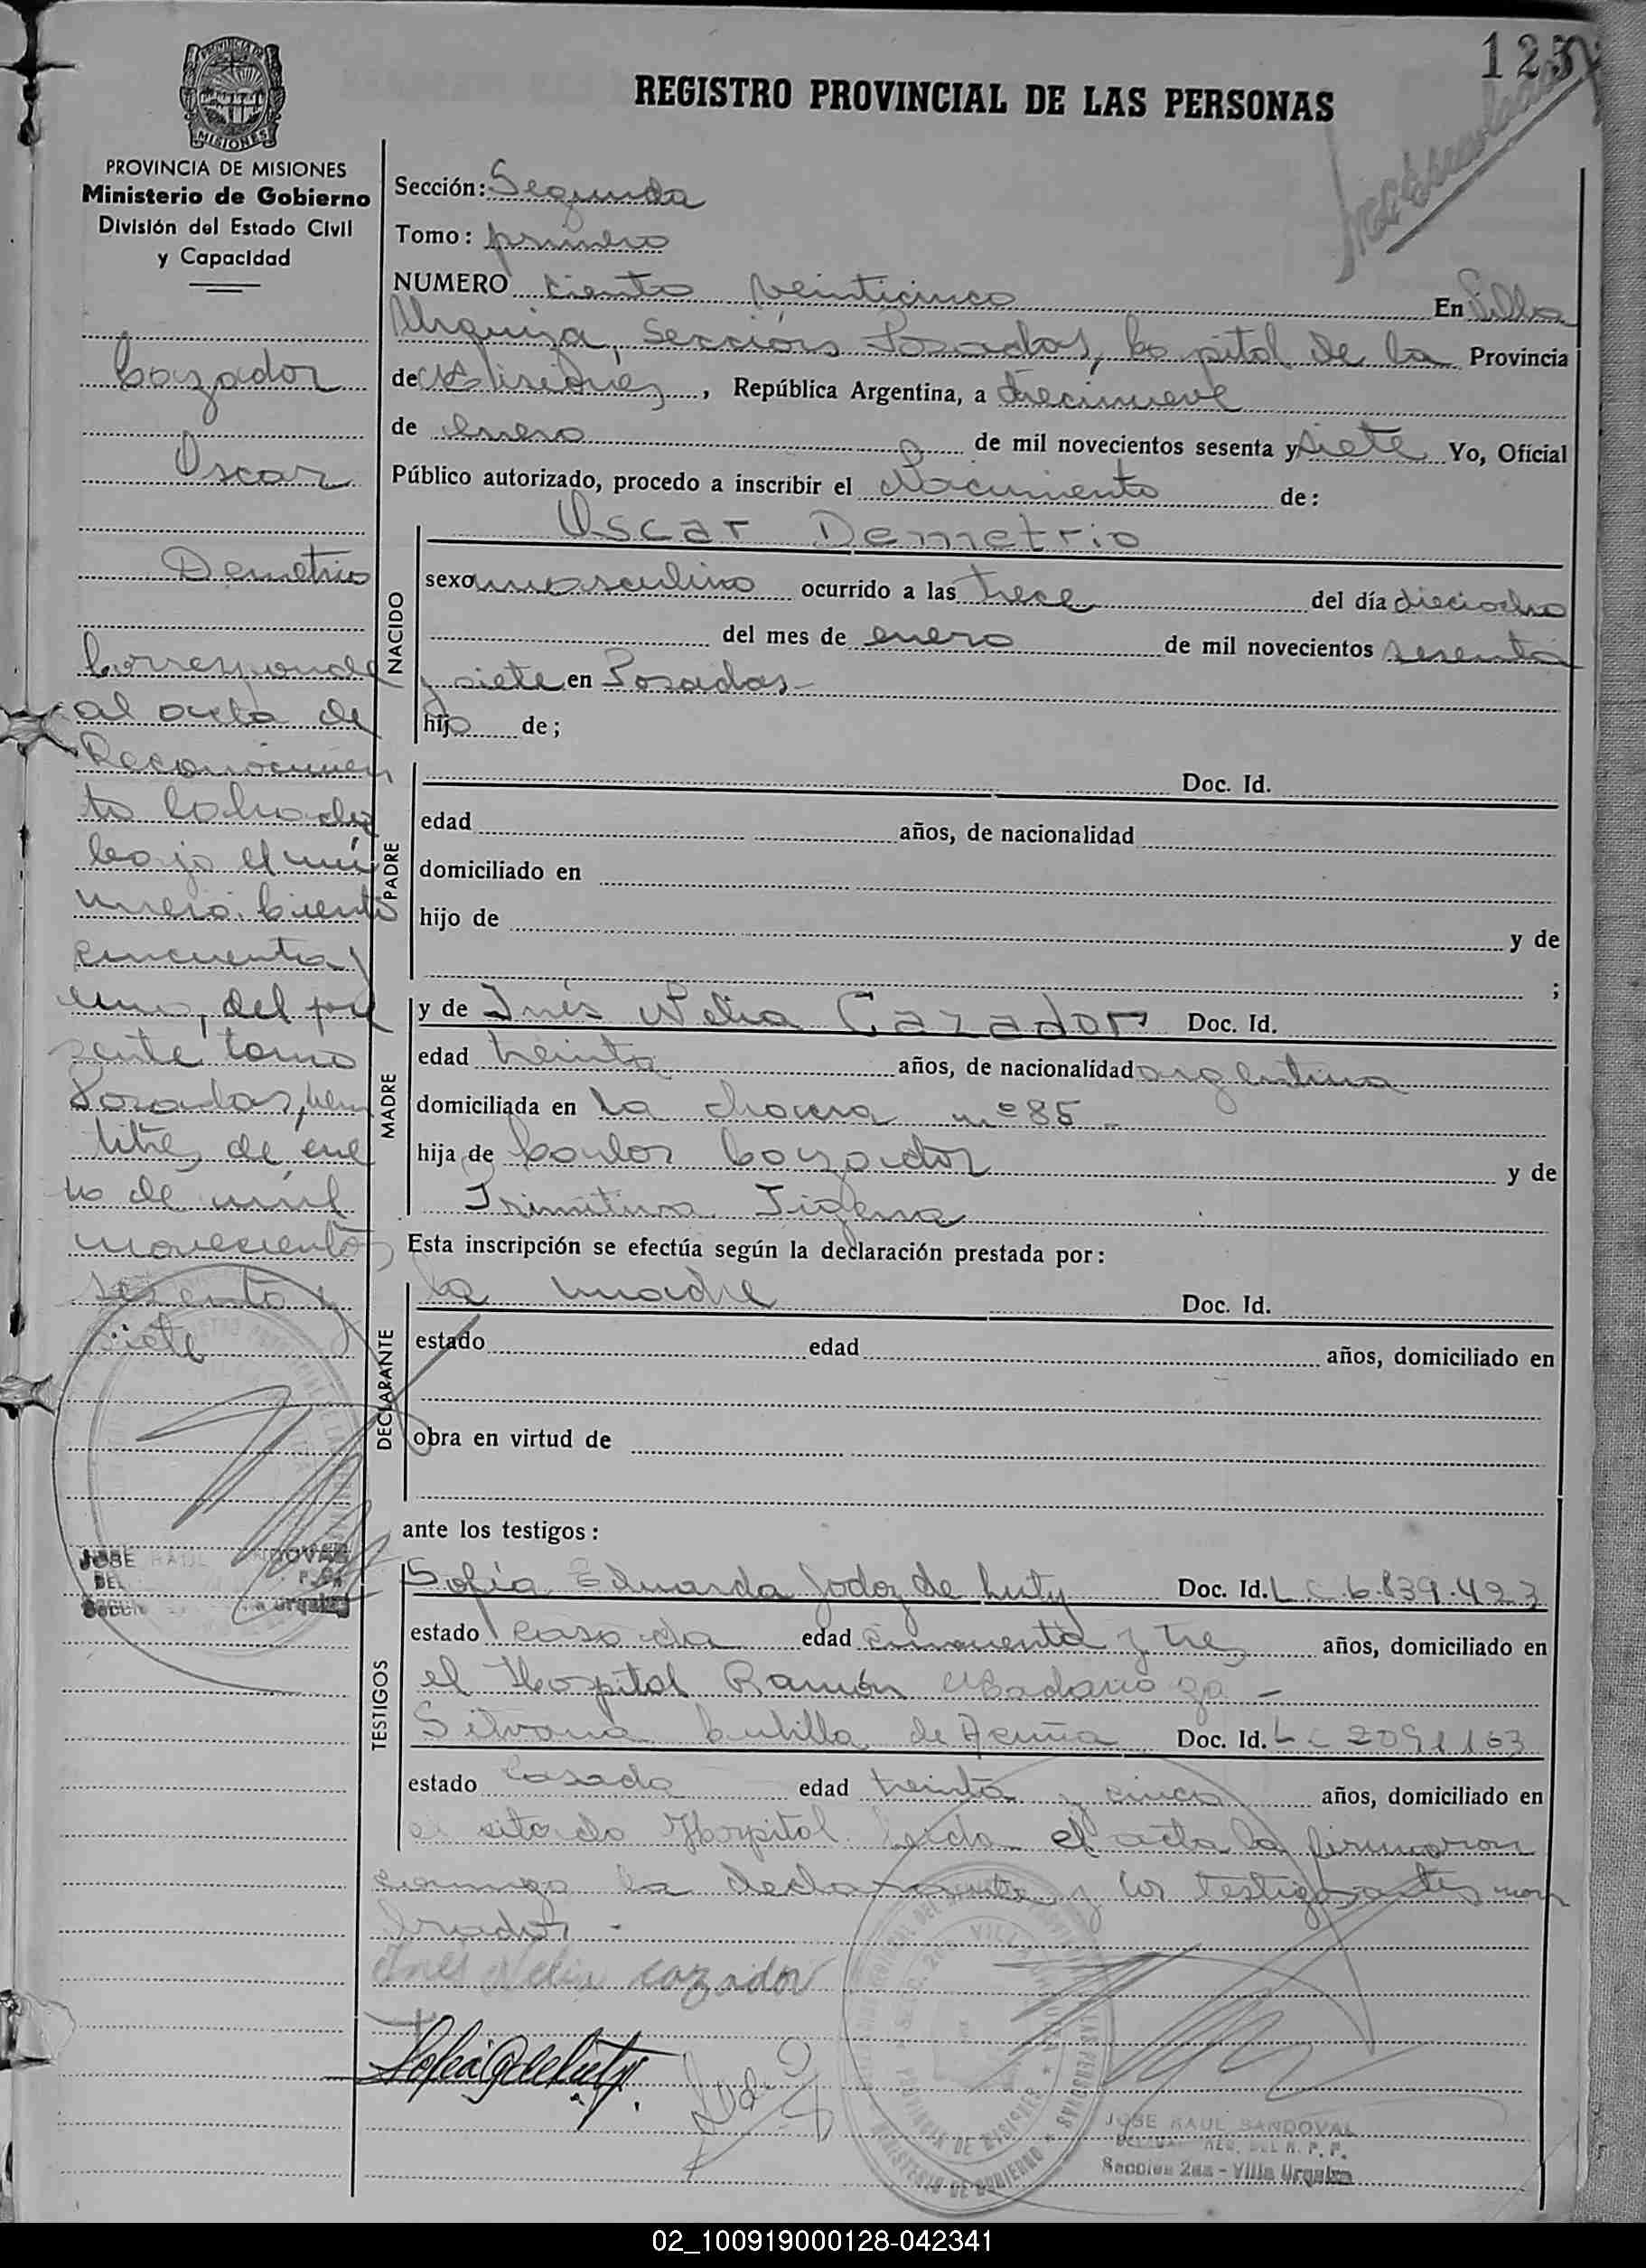 125
REGISTRO PROVINCIAL DE LAS PERSONAS
PROVINCIA DE
MISIONES
PROVINCIA DE MISIONES
Ministerio de Gobierno
División del Estado Civil
y Capacidad
Cazador
Oscar
Demetrio
Corresponde
al acta de
Reconocimien
to labrada
bajo el nú
mero ciento
cincuenta y
uno, del pre
sente tomo
Posadas, vein
titrés de ene
ro de mil
novecientos
sesenta y
siete
JOSE RAUL SANDOVAL
Sección: Segunda
Tomo: primero
NUMERO ciento veinticinco En Villa
Urquiza, Sección Posadas, Capital de la Provincia
de Misiones, República Argentina, a diecinueve
de enero de mil novecientos sesenta y siete Yo, Oficial
Público autorizado, procedo a inscribir el Nacimiento de:
NACIDO
Oscar Demetrio
sexo masculino ocurrido a las trece del día dieciocho
del mes de enero de mil novecientos sesenta
y siete en Posadas-
hijo de;
PADRE
Doc. Id.
edad años, de nacionalidad
domiciliado en
hijo de y de
;
MADRE
y de Inés Nelia Cazador Doc. Id.
edad treinta años, de nacionalidad argentina
domiciliada en La chacra nº 85 -
hija de Carlos Cazador y de
Primitiva
Esta inscripción se efectúa según la declaración prestada por:
DECLARANTE
la madre Doc. Id.
estado edad años, domiciliado en
obra en virtud de
ante los testigos:
TESTIGOS
Sofía Eduarda de Luty Doc. Id. L C 6.839.423
estado casada edad cincuenta y tres años, domiciliado en
el Hospital Ramón Madariaga -
Silvana de Acuña Doc. Id. L C 2091163
estado casada edad treinta y cinco años, domiciliado en
el citado Hospital. Leída el acta la firmaron
conmigo la declarante y los testigos antes nom
brados -
Ines Nelia cazador
JOSE RAUL SANDOVAL
Seccion 2da - Villa Urquiza
02_100919000128-042341